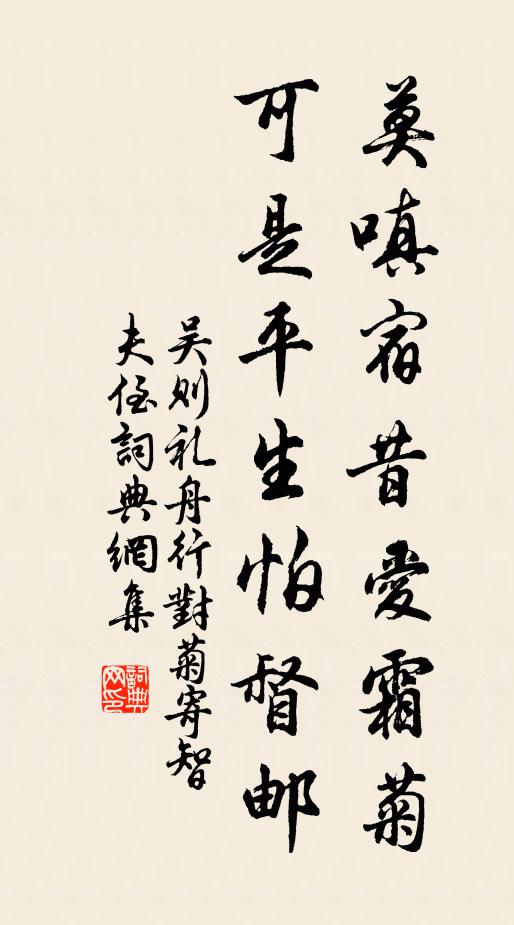 莫嗔宿昔愛霜菊
可是平生怕督邮
吴则礼舟行對菊寄智
夫侄詞典網集
詞典
网印